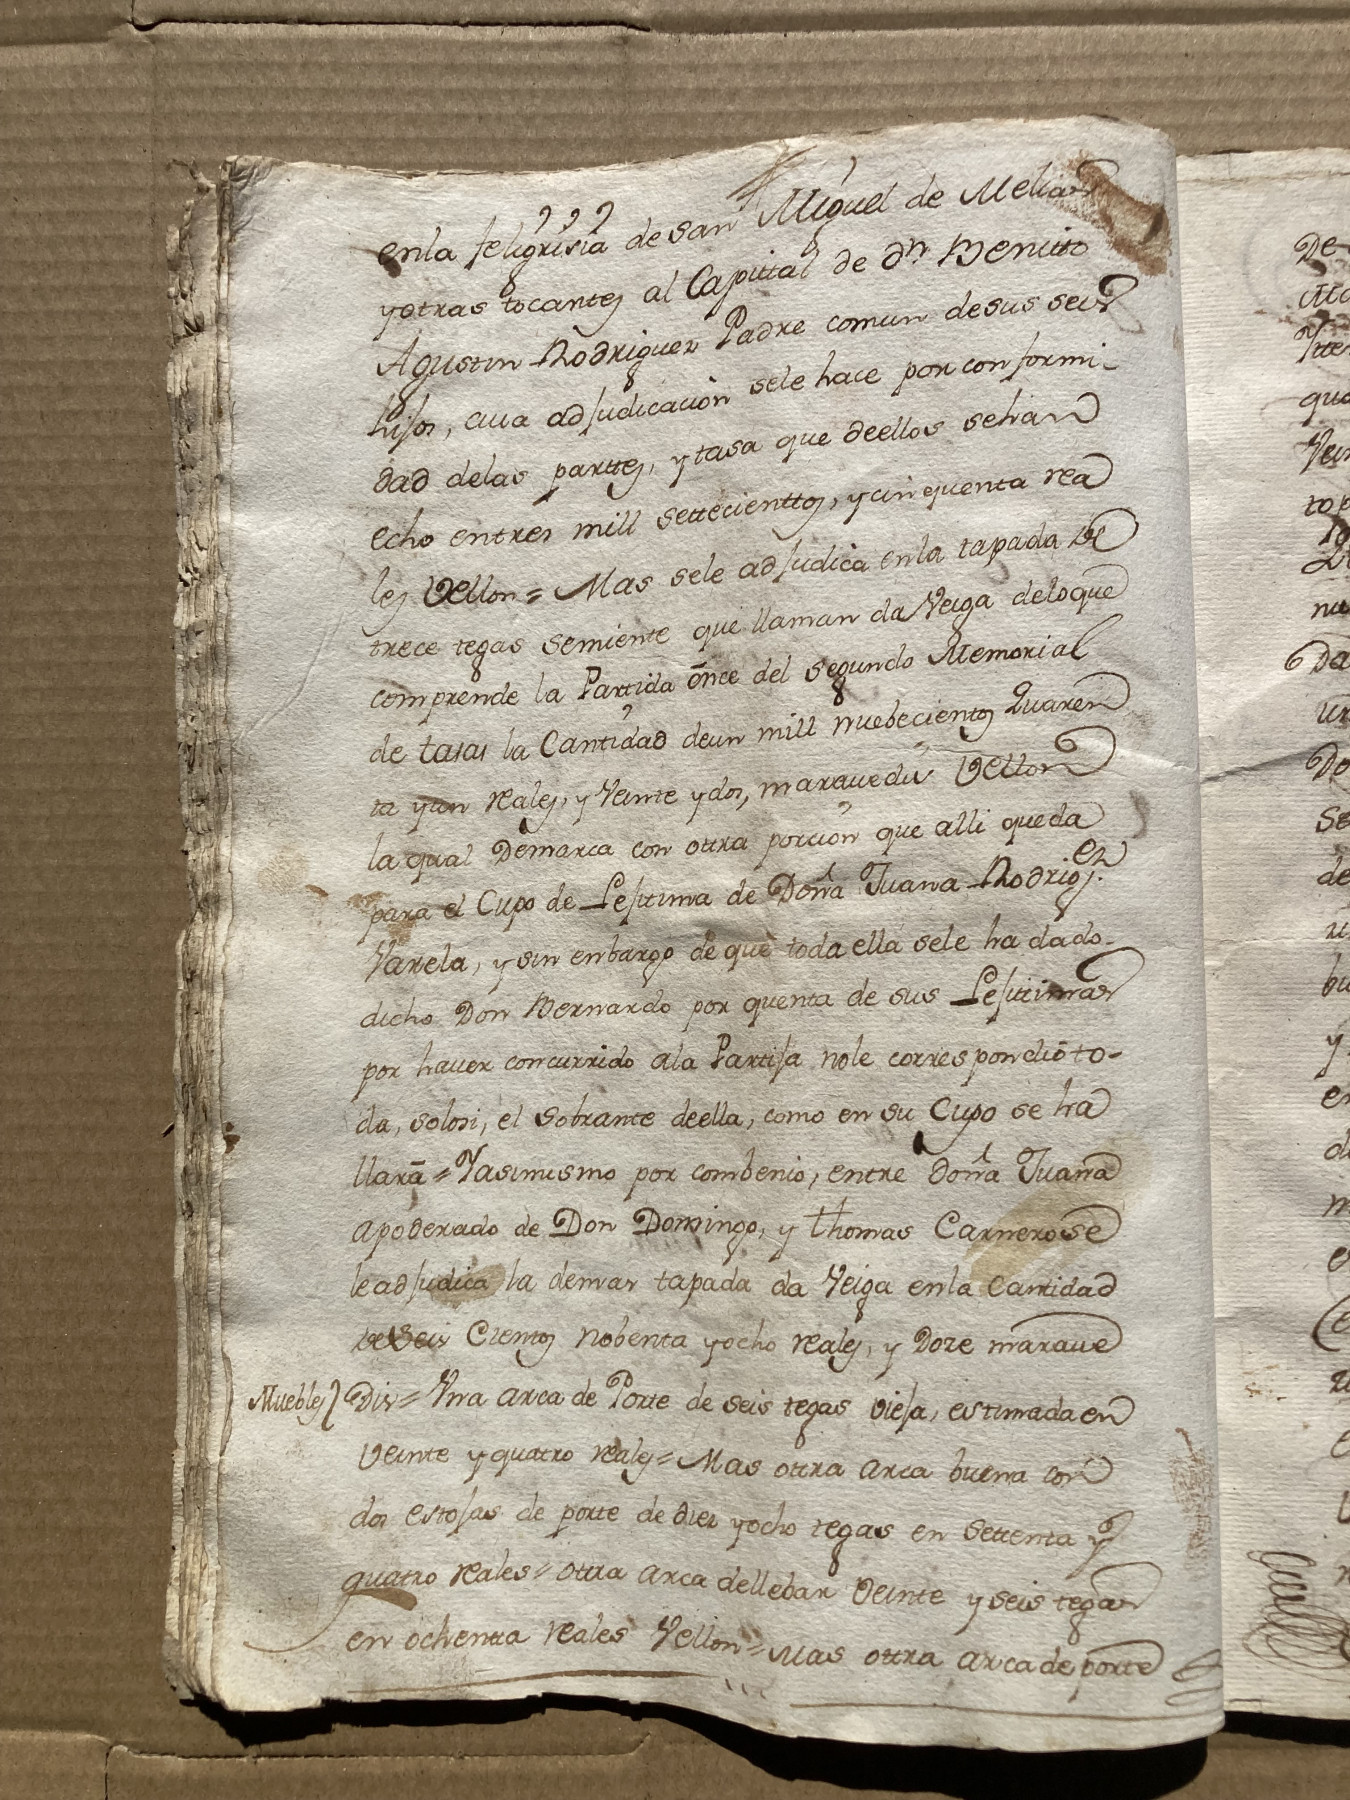 enla feligrisia de san Miguel de Melias
yotras tocantes al Capital de Dn Benitto
Agustin Rodriguez Padre comun de sus seis
hijos, cuia adjudicación sele hace por conformi-
dad delas parttes, y tasa que deellos sehan
echo entres mill settecienttos, ycinquenta rea
les Vellon = Mas sele adjudica enla tapada de
trece tegas semiente que llaman da Veiga deloque
comprende la Partida once del segundo Memorial
de tasas la Cantidad deun mill nuebecientos Quaren
ta yun reales, y Veinte ydos, maravedis Vellon
la qual Demarca con otra porción que alli queda
para el Cupo de Lejitima de Doña Juana Rodrigez.
Varela, y sin enbargo de que toda ella sele ha dado-
dicho Don Bernardo por quenta de sus Lejitimas
por haver concurrido ala Partija nole correspondió to-
da, solosi, el sobrante deella, como en su Cupo se ha
llará = Yasimismo por combenio, entre doña Juana
apoderado de Don Domingo, y Thomas Carnero se
leadjudica la demas tapada da Veiga enla Cantidad
de Seis Cientos nobenta yocho reales, y Doze marave
Muebles } Dis = Vna arca de Porte de seis tegas vieja, estimada en
Veinte y quatro reales = Mas ottra arca buena con
dos estojas de porte de diez yocho tegas en settenta y
quatro reales = ottra arca dellebar Veinte y seis tegas
en ochenta reales Vellon = Mas ottra arca de porte